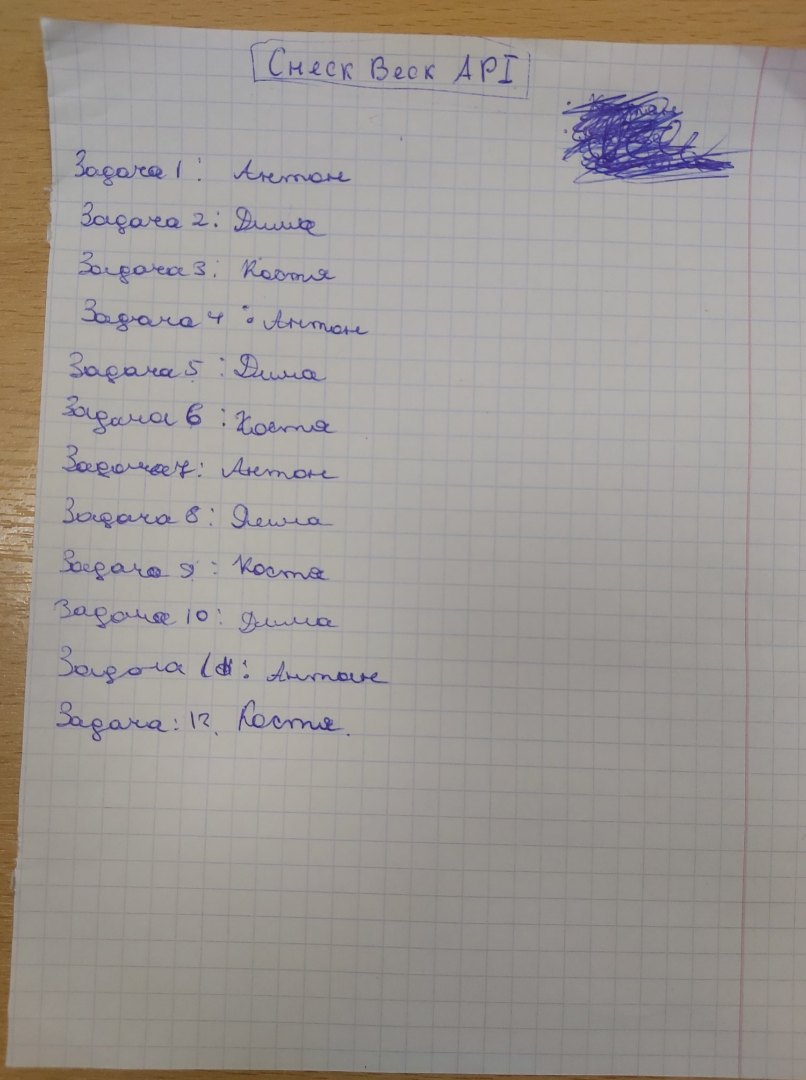 Снеск Веск API
Задача 1: Антон
Задача 2: Дима
Задача 3: Костя
Задача 4: Антон
Задача 5: Дима
Задача 6: Костя
Задача 7: Антон
Задача 8: Дима
Задача 9: Костя
Задача 10: Дима
Задача 11: Антон
Задача: 12. Костя.